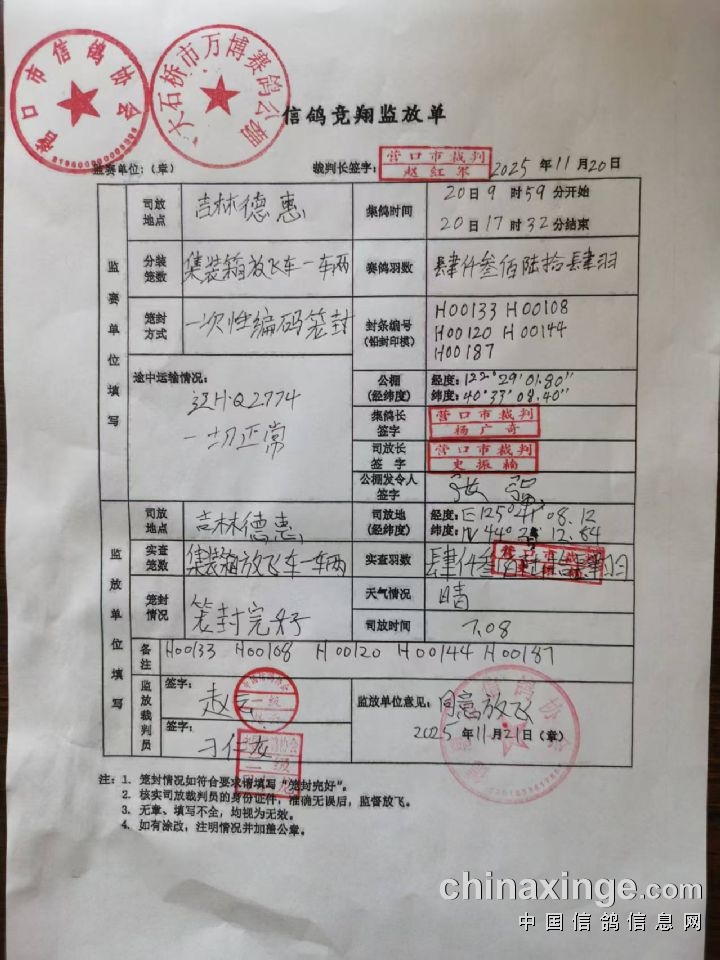 营口市信鸽协会
大石桥市万博赛鸽公棚
信鸽竞翔监放单
监赛单位:(章) 裁判长签字: 营口市裁判 赵红军 2025年11月20日
监赛单位填写
司放地点 吉林德惠 集鸽时间 20日9时59分开始
20日17时32分结束
分装笼数 集装箱放飞车一车两 赛鸽羽数 肆仟叁佰陆拾肆羽
笼封方式 一次性编码笼封 封条编号(铅封印模) H00133 H00108
H00120 H00144
H00187
途中运输情况:
辽H·Q2774
一切正常
公棚(经纬度) 经度:122°29′01.80″
纬度:40°37′08.40″
集鸽长签字 营口市裁判 杨广奇
司放长签字 营口市裁判 史振楠
公棚发令人签字
监放单位填写
司放地点 吉林德惠 司放地(经纬度) 经度:E125°41′08.12
纬度:N44° 12.84
实查笼数 集装箱放飞车一车两 实查羽数 肆仟叁佰陆拾肆羽
笼封情况 笼封完好 天气情况 晴
司放时间 7.08
备注 H00133 H00108 H00120 H00144 H00187
监放裁判员 签字: 赵 一级
签字: 刁仁 二级
监放单位意见: 同意放飞
2025年11月21日(章)
信鸽协会
注: 1. 笼封情况如符合要求请填写“笼封完好”。
2. 核实司放裁判员的身份证件,准确无误后,监督放飞。
3. 无章、填写不全,均视为无效。
4. 如有涂改,注明情况并加盖公章。
chinaxinge.com
中国信鸽信息网